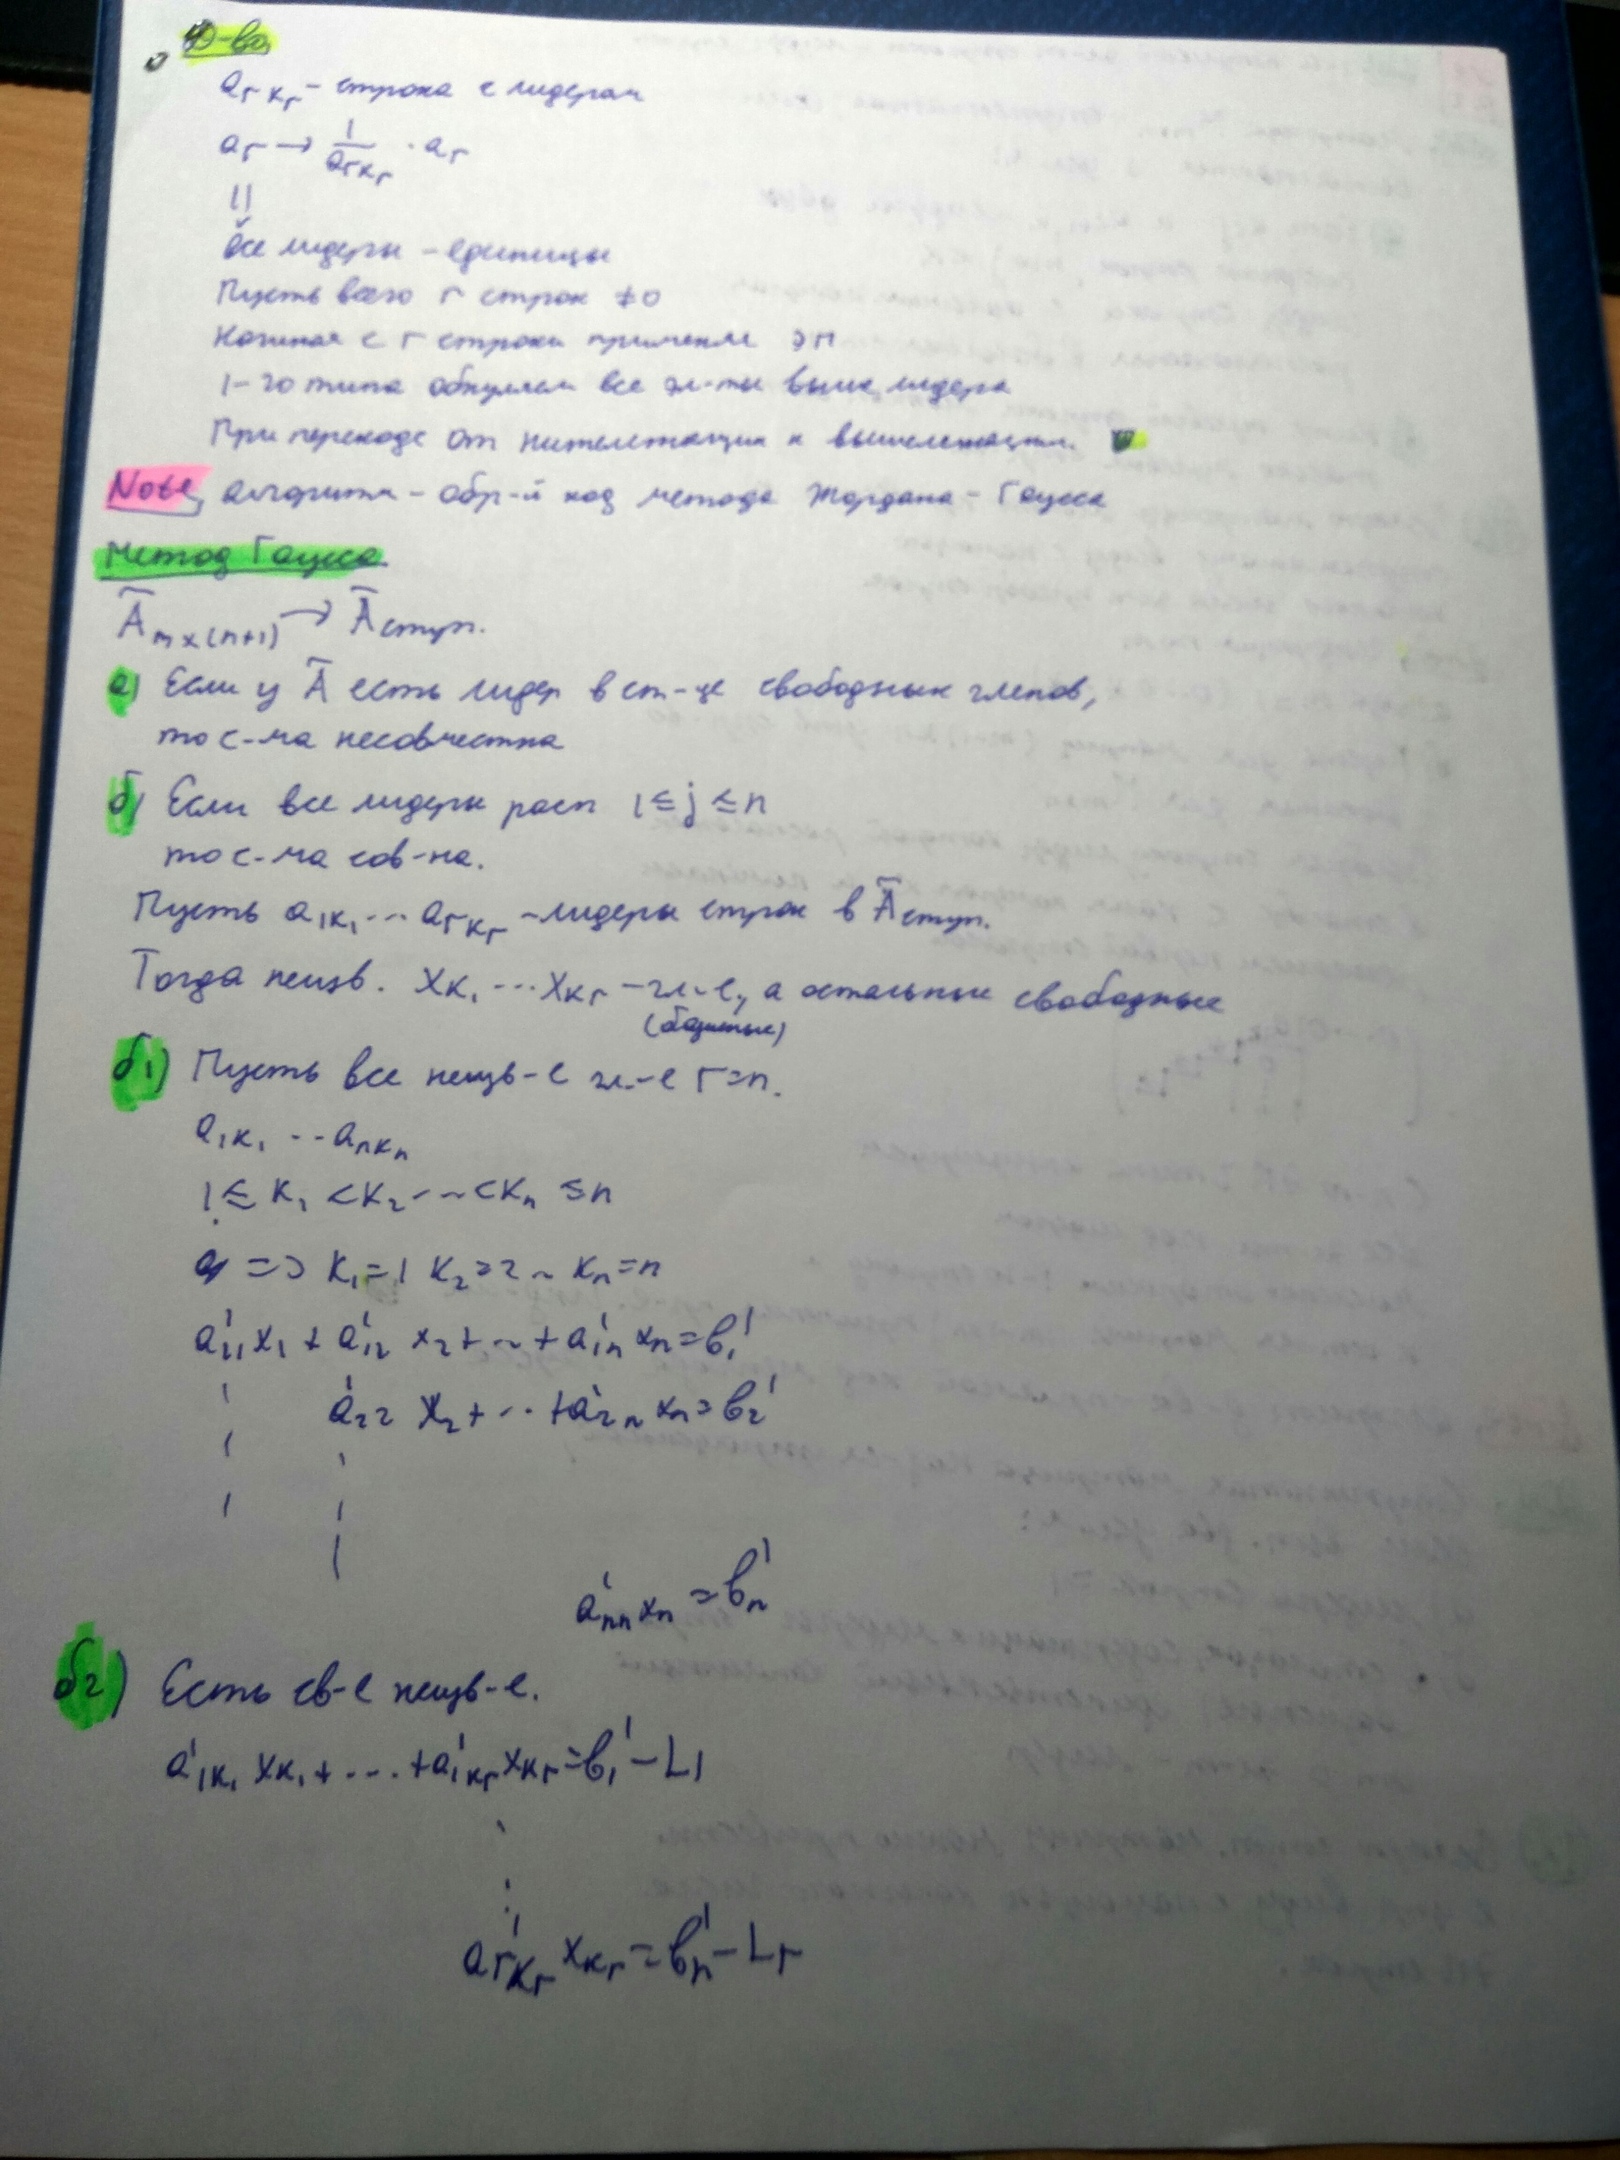 Д-во
a_{r k_r} - строка с лидерам
a_r → 1/a_{r k_r} · a_r
⇓
все лидеры - единицы
Пусть всего r строк ≠0
Начиная с r строки применяе ЭП
1-го типа обнуляем все эл-ты выше лидера
При переходе от нижележащих к вышележащим.
Note, алгоритм - обр-й ход метода Жордана - Гаусса
Метод Гаусса
Ā_{m×(n+1)} → Ā ступ.
а) Если у Ā есть лидер в ст-це свободных членов,
то с-ма несовместна
б) Если все лидеры расп 1≤j≤n
то с-ма сов-на.
Пусть a_{1k_1} ... a_{rk_r} - лидеры строк в Ā ступ.
Тогда неизв. x_{k_1} ... x_{k_r} - гл-е, а остальные свободные
(базисные)
б1) Пусть все неизв-е гл-е r=n.
a_{1k_1} ... a_{nk_n}
1≤ k_1 <k_2 ... <k_n ≤n
=> k_1=1 k_2=2 ... k_n=n
a'_{11}x_1 + a'_{12} x_2 + ... + a'_{1n} x_n = b'_1
a'_{22} x_2 + ... + a'_{2n} x_n = b'_2
a'_{nn} x_n = b'_n
б2) Есть св-е неизв-е.
a'_{1k_1} x_{k_1} + .... + a'_{1k_r} x_{k_r} = b'_1 - L_1
a'_{rk_r} x_{k_r} = b'_n - L_r